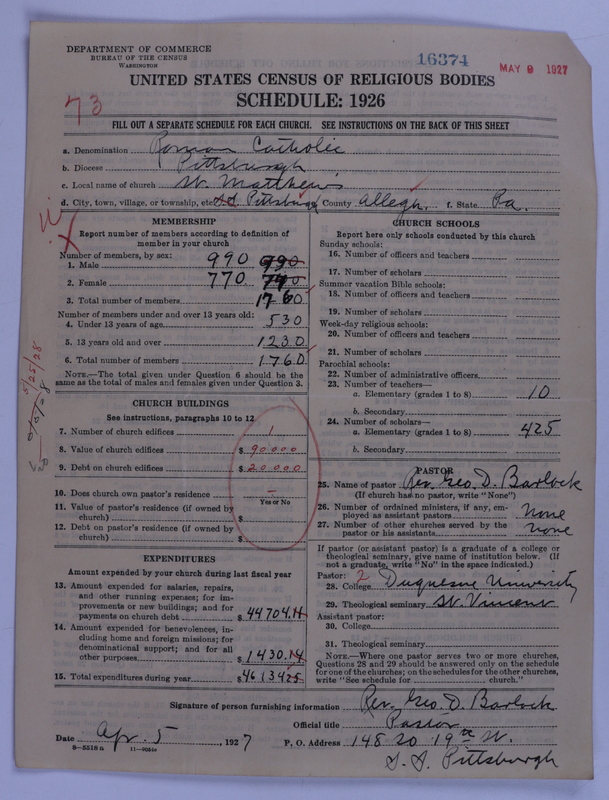 DEPARTMENT OF COMMERCE
BUREAU OF THE CENSUS
WASHINGTON
16374
MAY 9 1927
UNITED STATES CENSUS OF RELIGIOUS BODIES
SCHEDULE: 1926
73
FILL OUT A SEPARATE SCHEDULE FOR EACH CHURCH. SEE INSTRUCTIONS ON THE BACK OF THIS SHEET
a. Denomination Roman Catholic
b. Diocese Pittsburgh
c. Local name of church St. Matthew's
d. City, town, village, or township, etc. Pittsburgh County Allegh. f. State Pa.
MEMBERSHIP
Report number of members according to definition of
member in your church
Number of members, by sex:
1. Male 990 990
2. Female 770 770
3. Total number of members 1760
Number of members under and over 13 years old:
4. Under 13 years of age 530
5. 13 years old and over 1230
6. Total number of members 1760
NOTE.—The total given under Question 6 should be
same as the total of males and females given under Question 3.
5/25/28
CHURCH BUILDINGS
See instructions, paragraphs 10 to 12
7. Number of church edifices 1
8. Value of church edifices $ 90000
9. Debt on church edifices $ 20000
10. Does church own pastor's residence —
Yes or No
11. Value of pastor's residence (if owned by
church) $
12. Debt on pastor's residence (if owned by
church) $
EXPENDITURES
Amount expended by your church during last fiscal year
13. Amount expended for salaries, repairs,
and other running expenses; for im-
provements or new buildings; and for
payments on church debt $ 44704.11
14. Amount expended for benevolences, in-
cluding home and foreign missions; for
denominational support; and for all
other purposes $ 1430.14
15. Total expenditures during year $ 46134.25
CHURCH SCHOOLS
Report here only schools conducted by this church
Sunday schools:
16. Number of officers and teachers
17. Number of scholars
Summer vacation Bible schools:
18. Number of officers and teachers
19. Number of scholars
Week-day religious schools:
20. Number of officers and teachers
21. Number of scholars
Parochial schools:
22. Number of administrative officers
23. Number of teachers—
a. Elementary (grades 1 to 8) 10
b. Secondary
24. Number of scholars—
a. Elementary (grades 1 to 8) 425
b. Secondary
PASTOR
25. Name of pastor Rev. Geo. D. Barlock
(If church has no pastor, write "None")
26. Number of ordained ministers, if any, em-
ployed as assistant pastors None
27. Number of other churches served by the
pastor or his assistants none
If pastor (or assistant pastor) is a graduate of a college or
theological seminary, give name of institution below. (If
not a graduate, write "No" in the space indicated.)
Pastor: 2
28. College Duquesne University
29. Theological seminary St. Vincent
Assistant pastor:
30. College
31. Theological seminary
NOTE.—Where one pastor serves two or more churches,
Questions 28 and 29 should be answered only on the schedule
for one of the churches; on the schedules for the other churches,
write "See schedule for church."
Signature of person furnishing information Rev. Geo. D. Barlock
Official title Pastor
Date Apr. 5, 1927 P. O. Address 148 So 19th St.
S. S. Pittsburgh
8—5518a 11—9054